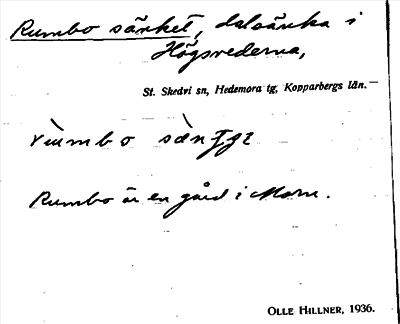 Rumbo sänket, dalsänka i
Högsvederna,
St. Skedvi sn, Hedemora tg, Kopparbergs län.
Rumbo är en gård i Morn.
OLLE HILLNER, 1936.